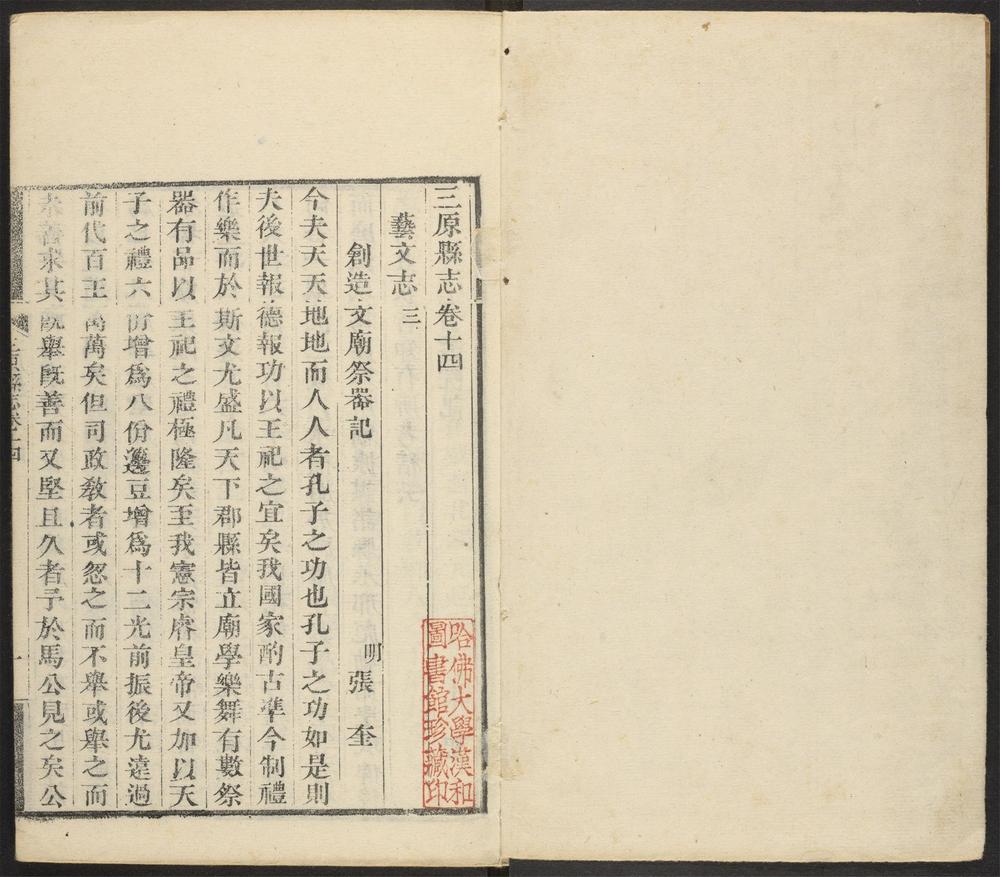 三原縣志卷十四
藝文志三
創造文廟祭器記
明張奎
今夫天天地地而人人者孔子之功也孔子之功如是則
夫後世報德報功以王祀之宜矣我國家酌古準今制禮
作樂而於斯文尤盛凡天下郡縣皆立廟學樂舞有數祭
器有品以王祀之禮極隆矣至我憲宗睿皇帝又加以天
子之禮六佾增爲八佾籩豆增爲十二光前振後尤遠過
前代百王萬萬矣但司政敎者或忽之而不舉或舉之而
未善求其既舉旣善而又堅且久者予於馬公見之矣公
三原縣志卷十四
一
哈佛大學漢和
圖書館珍藏印